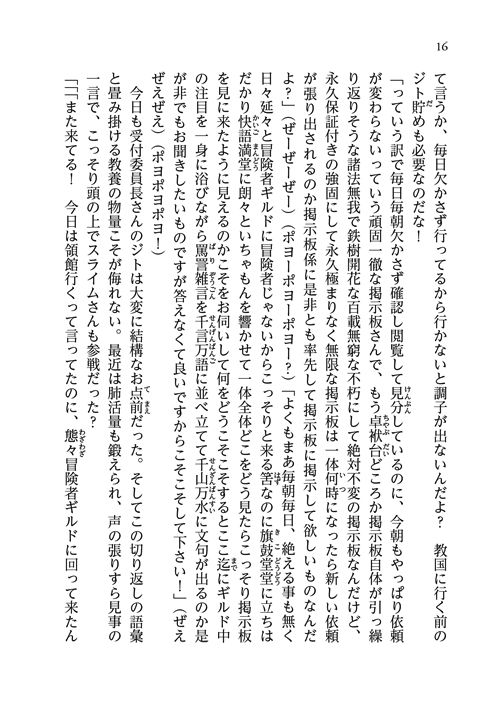 16
て言うか、毎日欠かさず行ってるから行かないと調子が出ないんだよ？　教国に行く前の
ジト貯めも必要なのだな！
「っていう訳で毎日毎朝欠かさず確認し閲覧して見分しているのに、今朝もやっぱり依頼
が変わらないっていう頑固一徹な掲示板さんで、もう卓袱台どころか掲示板自体が引っ繰
り返りそうな諸法無我で鉄樹開花な百載無窮な不朽にして絶対不変の掲示板なんだけど、
永久保証付きの強固にして永久極まりなく無限な掲示板は一体何時になったら新しい依頼
が張り出されるのか掲示板係に是非とも率先して掲示板に掲示して欲しいものなんだ
よ？」（ぜーぜーぜー）（ポヨーポヨーポヨー？）「よくもまあ毎朝毎日、絶える事も無く
日々延々と冒険者ギルドに冒険者じゃないからこっそりと来る筈なのに旗鼓堂堂に立ちは
だかり快語満堂に朗々といちゃもんを響かせて一体全体どこをどう見たらこっそり掲示板
を見に来たように見えるのかこそをお伺いして何をどうこそこそするとここ迄にギルド中
の注目を一身に浴びながら罵詈雑言を千言万語に並べ立てて千山万水に文句が出るのか是
が非でもお聞きしたいものですが答えなくて良いですからこそこそして下さい！」（ぜえ
ぜえぜえ）（ポヨポヨポヨ！）
　今日も受付委員長さんのジトは大変に結構なお点前だった。そしてこの切り返しの語彙
と畳み掛ける教養の物量こそが侮れない。最近は肺活量も鍛えられ、声の張りすら見事の
一言で、こっそり頭の上でスライムさんも参戦だった？
「「「また来てる！　今日は領館行くって言ってたのに、態々冒険者ギルドに回って来たん